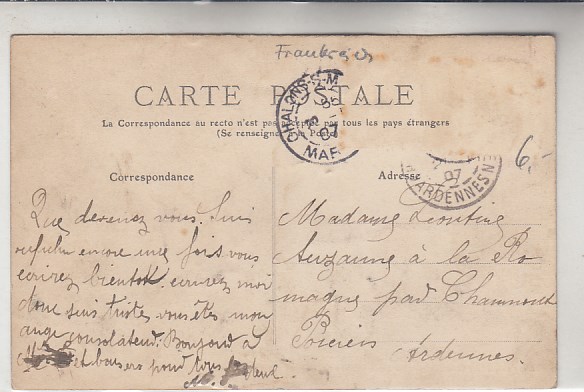 Frankreich
CARTE POSTALE
La Correspondance au recto n'est pas acceptée par tous les pays étrangers
(Se renseigner à la Poste)
CHALONS-S-M
MAR
07
ARDENNES
6,-
Correspondance
Adresse
Que devenez vous. Suis
encore une fois vous
ecrirez bientot. ecrivez moi
donc suis triste vous êtes mon
ange consolateur. Bonjour à
et baisers pour tous
Madame Léontine
Auzanne à la Ro
magne par Chaumont
Porcien
Ardennes.